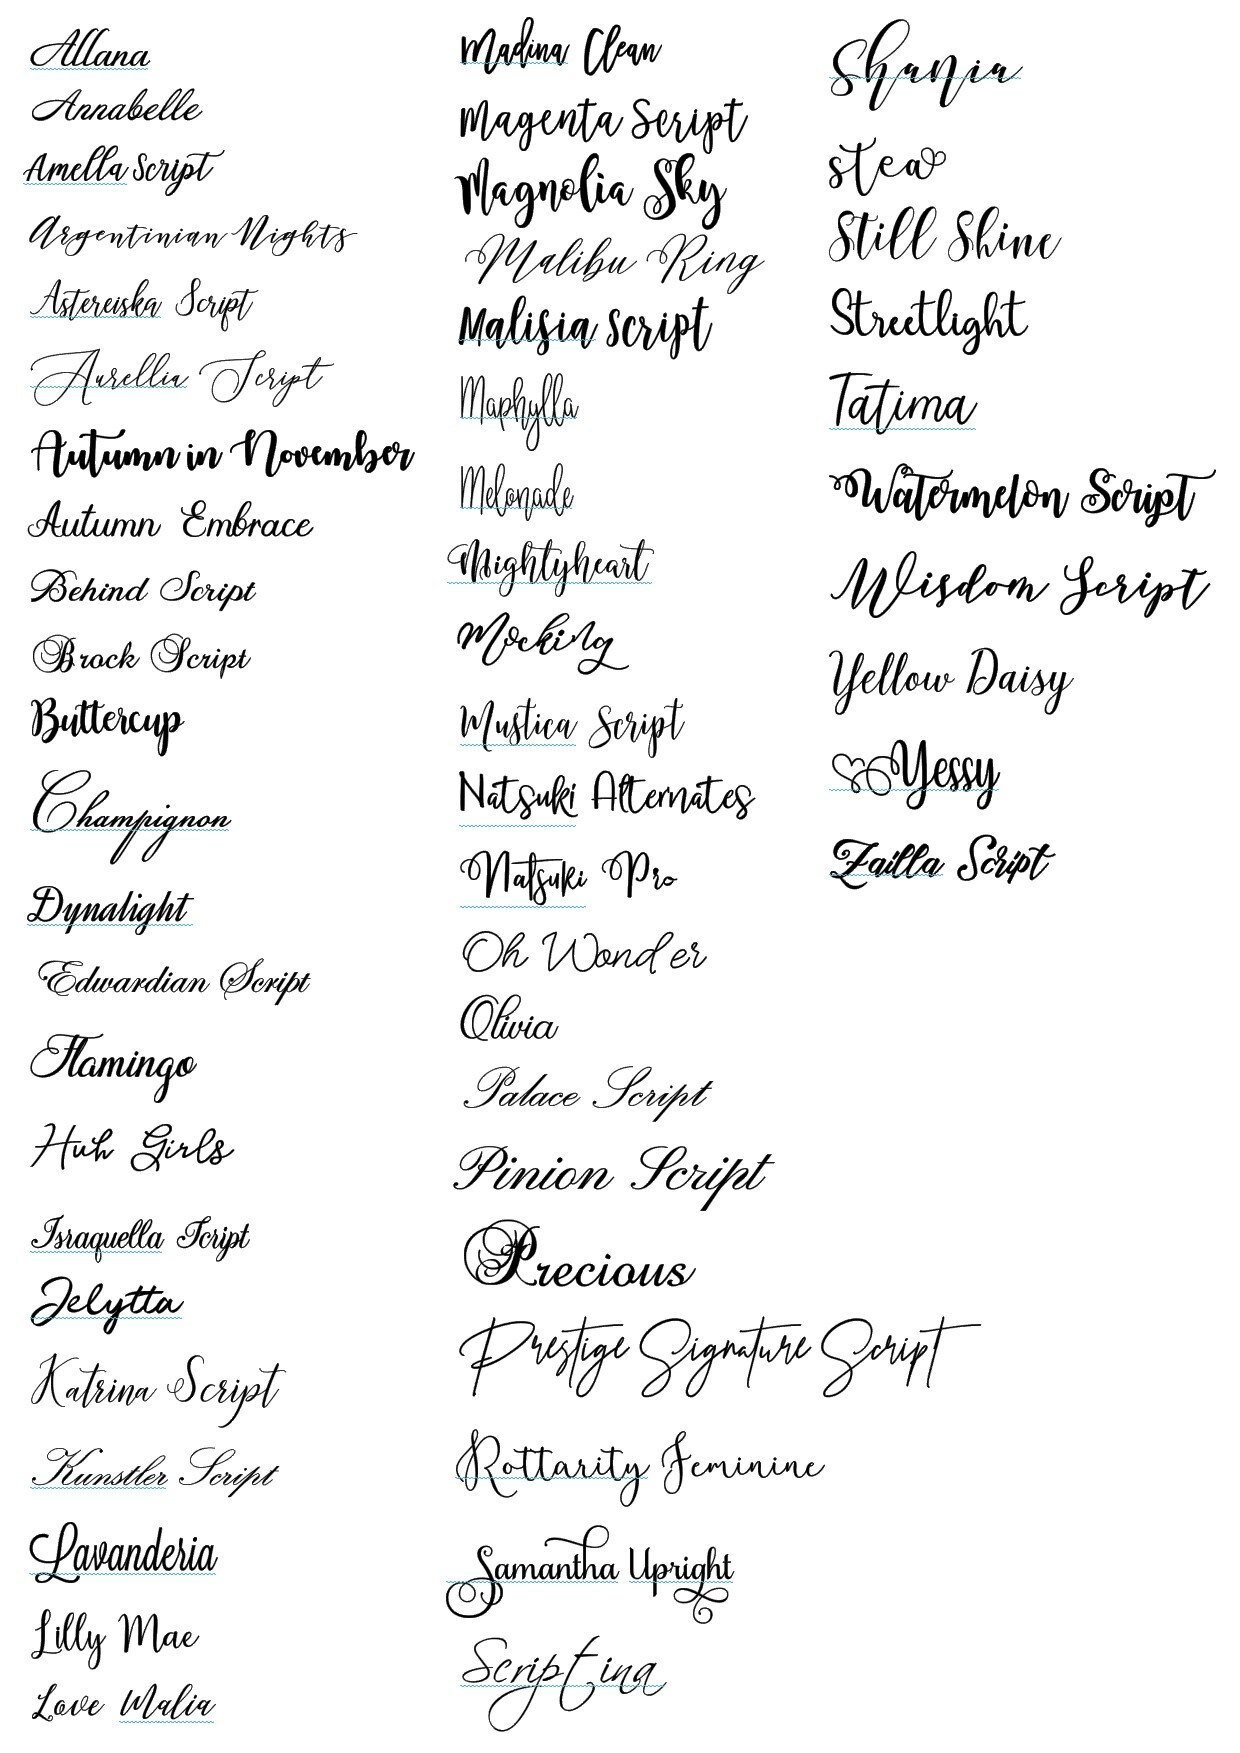 Allana
Annabelle
Amella Script
Argentinian Nights
Astereiska Script
Aurellia Script
Autumn in November
Autumn Embrace
Behind Script
Brock Script
Buttercup
Champignon
Dynalight
Edwardian Script
Flamingo
Huh Girls
Israquella Script
Jelytta
Katrina Script
Kunstler Script
Lavanderia
Lilly Mae
Love Malia
Madina Clean
Magenta Script
Magnolia Sky
Malibu Ring
Malisia Script
Maphylla
Melonade
Mightyheart
Mocking
Mustica Script
Natsuki Alternates
Natsuki Pro
Oh Wonder
Olivia
Palace Script
Pinion Script
Precious
Prestige Signature Script
Rottarity Feminine
Samantha Upright
Scriptina
Shania
stea
Still Shine
Streetlight
Tatima
Watermelon Script
Wisdom Script
Yellow Daisy
Yessy
Zailla Script